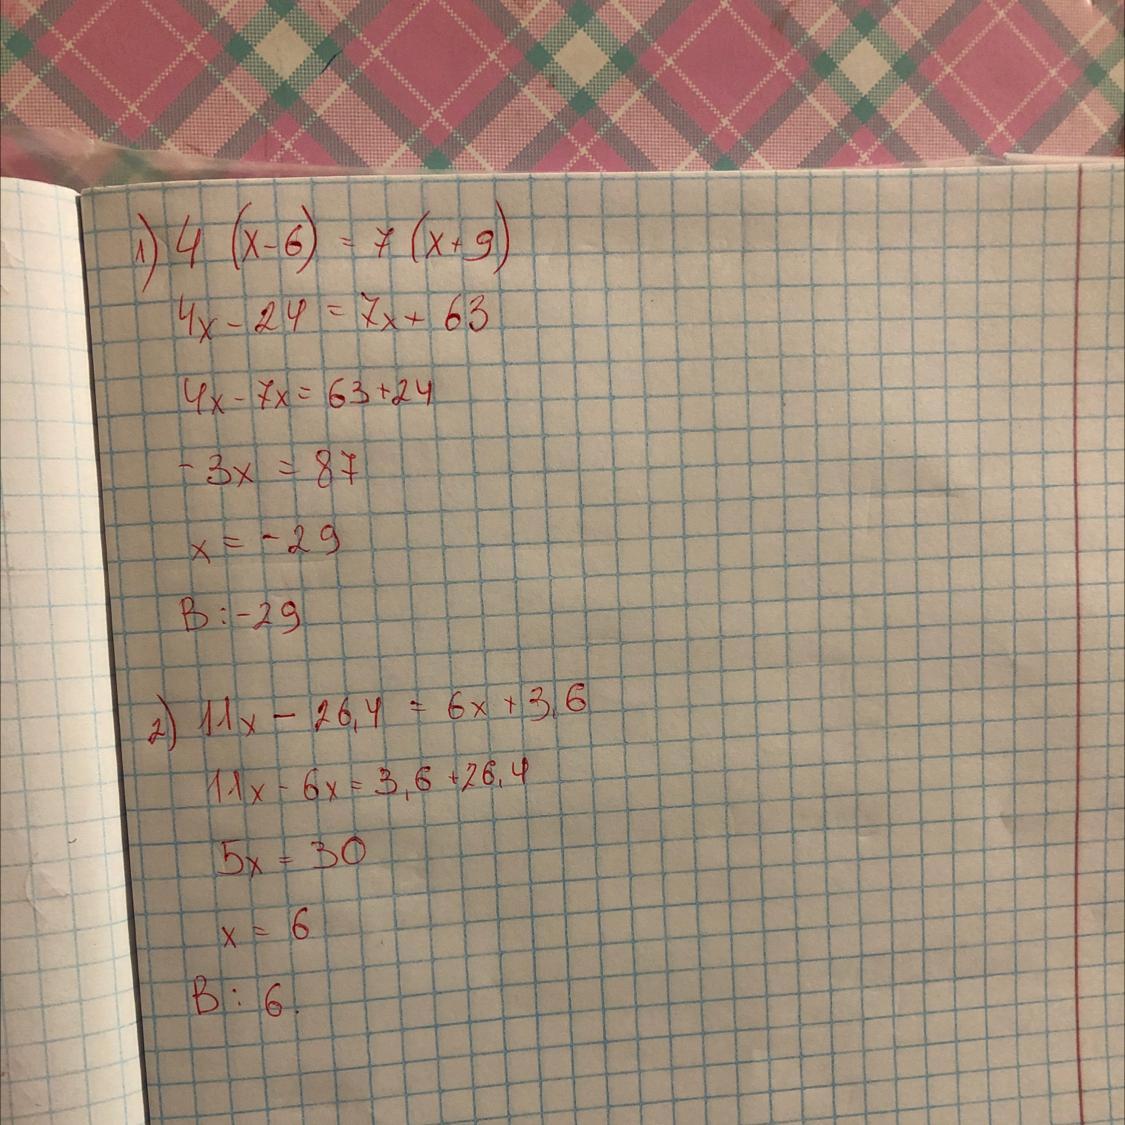 1) 4 (x-6) = 7 (x+9)
4x - 24 = 7x + 63
4x - 7x = 63+24
-3x = 87
x = -29
B: -29
2) 11x - 26,4 = 6x + 3,6
11x - 6x = 3,6 + 26,4
5x = 30
x = 6
B: 6.